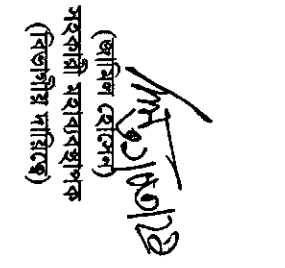 (জামিল হোসেন)
সহকারী মহাব্যবস্থাপক
(বিভাগীয় দায়িত্বে)